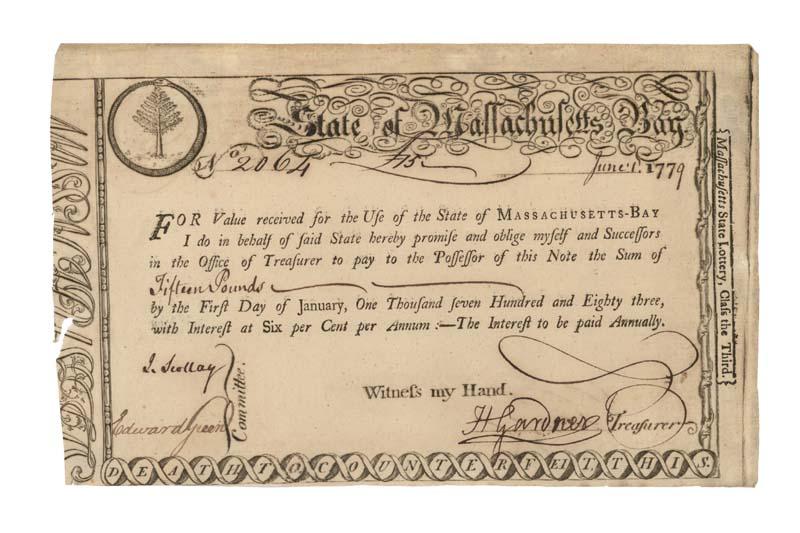 State of Massachusetts Bay
No. 2064 £15 June 1. 1779
FOR Value received for the Uſe of the State of MASSACHUSETTS-BAY
I do in behalf of ſaid State hereby promiſe and oblige myſelf and Succeſſors
in the Office of Treaſurer to pay to the Poſſeſſor of this Note the Sum of
Fifteen Pounds
by the Firſt Day of January, One Thouſand ſeven Hundred and Eighty three,
with Intereſt at Six per Cent per Annum :—The Intereſt to be paid Annually.
J. Scollay
Edward Green
Committee.
Witneſs my Hand.
H Gardner Treaſurer
DEATH TO COUNTERFEIT, THIS.
Maſſachuſetts State Lottery, Claſs the Third.